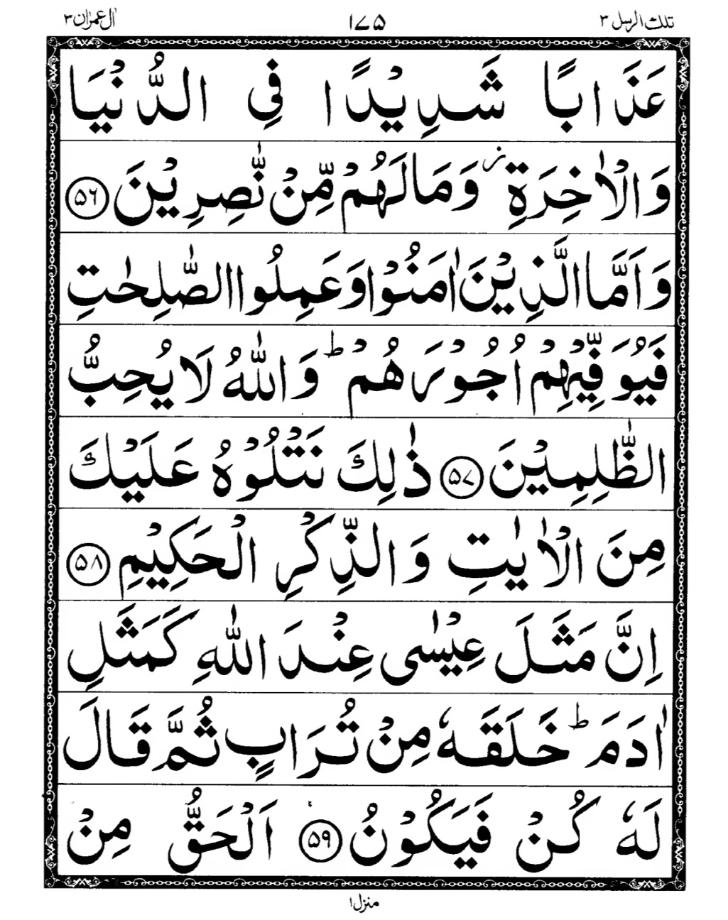 تلك الرسل ٣ ١٧٥ اٰل عمرٰن ٣
عَذَابًا شَدِيْدًا فِى الدُّنْيَا
وَالْاٰخِرَةِ ؗ وَمَا لَهُمْ مِّنْ نّٰصِرِيْنَ ﴿۵۶﴾
وَاَمَّا الَّذِيْنَ اٰمَنُوْا وَعَمِلُوا الصّٰلِحٰتِ
فَيُوَفِّيْهِمْ اُجُوْرَهُمْ ؕ وَاللّٰهُ لَا يُحِبُّ
الظّٰلِمِيْنَ ﴿۵۷﴾ ذٰلِكَ نَتْلُوْهُ عَلَيْكَ
مِنَ الْاٰيٰتِ وَالذِّكْرِ الْحَكِيْمِ ﴿۵۸﴾
اِنَّ مَثَلَ عِيْسٰى عِنْدَ اللّٰهِ كَمَثَلِ
اٰدَمَ ؕ خَلَقَهٗ مِنْ تُرَابٍ ثُمَّ قَالَ
لَهٗ كُنْ فَيَكُوْنُ ﴿۵۹﴾ اَلْحَقُّ مِنْ
منزل ١